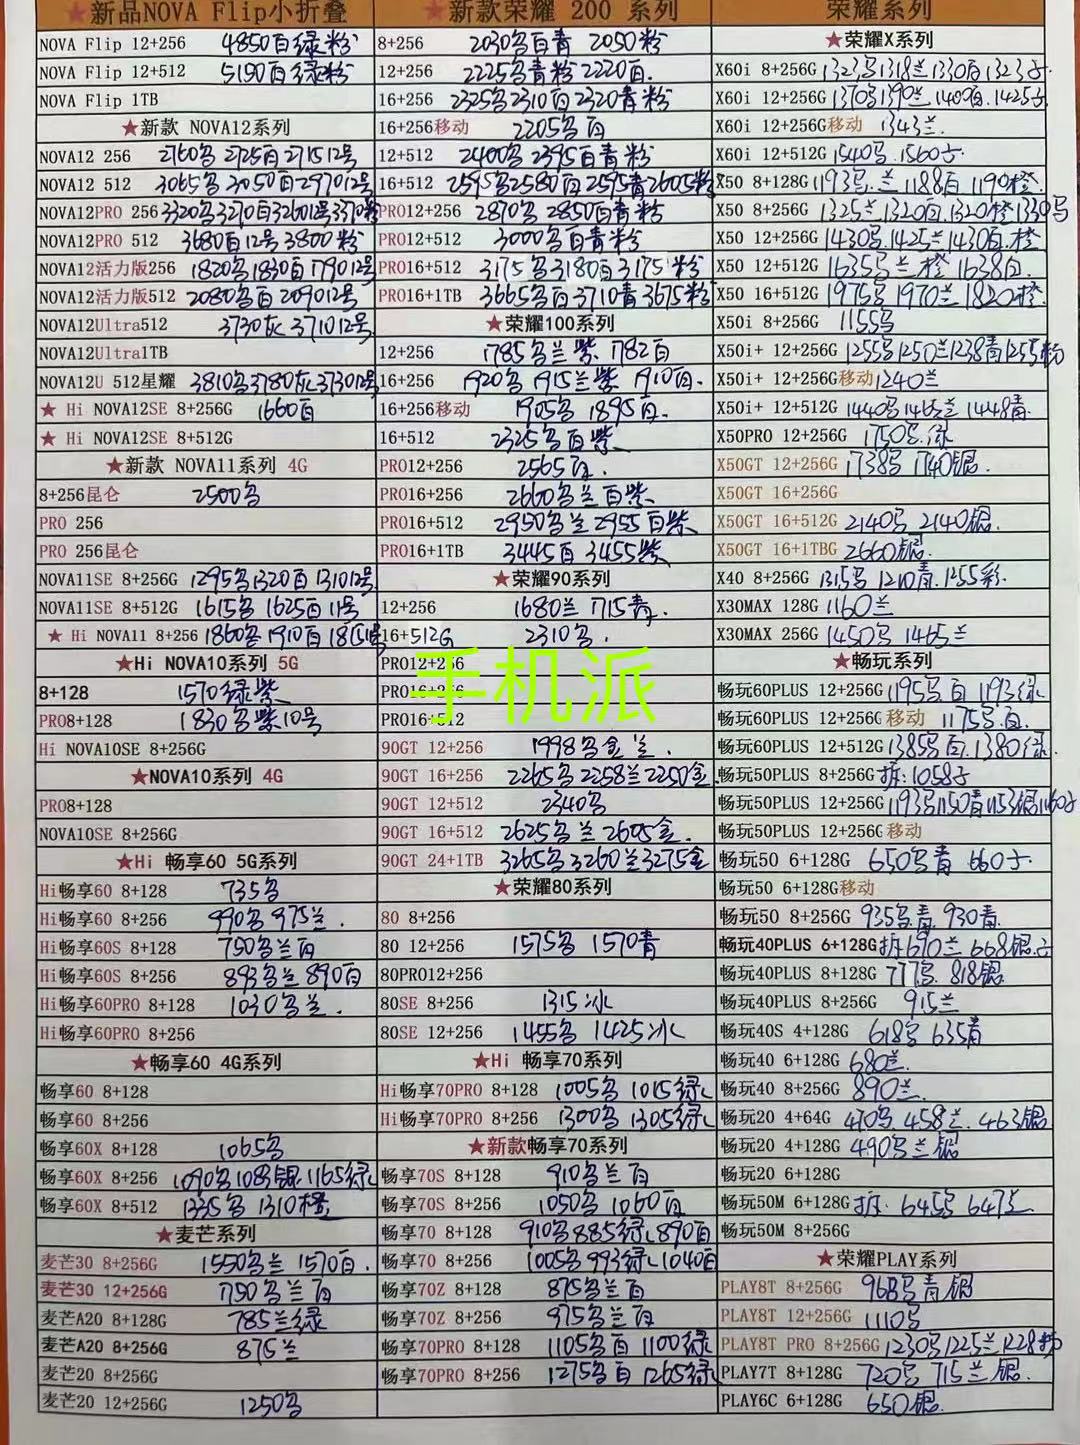 ★新品NOVA Flip小折叠
NOVA Flip 12+256 4850百绿粉
NOVA Flip 12+512 5150百绿粉
NOVA Flip 1TB
★新款 NOVA12系列
NOVA12 256 2760名 2725百 271512号
NOVA12 512 3065名 3050百 297012号
NOVA12PRO 256 3320名 3270百 326012号 3370粉
NOVA12PRO 512 3680百12号 3800粉
NOVA12活力版256 1820名 1830百 179012号
NOVA12活力版512 2080名百 209012号
NOVA12Ultra512 3730灰 371012号
NOVA12Ultra1TB
NOVA12U 512星耀 3810名 3780灰 373012号
★ Hi NOVA12SE 8+256G 1660百
★ Hi NOVA12SE 8+512G
★新款 NOVA11系列 4G
8+256昆仑 2500名
PRO 256
PRO 256昆仑
NOVA11SE 8+256G 1295名 1320百 131012号
NOVA11SE 8+512G 1615名 1625百 11号
★ Hi NOVA11 8+256 1860名 1910百
★Hi NOVA10系列 5G
8+128 1570绿紫
PRO8+128 1830名紫10号
Hi NOVA10SE 8+256G
★NOVA10系列 4G
PRO8+128
NOVA10SE 8+256G
★Hi 畅享60 5G系列
Hi畅享60 8+128 735名
Hi畅享60 8+256 990名 975兰.
Hi畅享60S 8+128 750名兰百
Hi畅享60S 8+256 893名兰 890百
Hi畅享60PRO 8+128 1030名兰.
Hi畅享60PRO 8+256
★畅享60 4G系列
畅享60 8+128
畅享60 8+256
畅享60X 8+128 1065名
畅享60X 8+256 1090名 银 1165绿
畅享60X 8+512 1335名 1310橙
★麦芒系列
麦芒30 8+256G 1550名兰 1570百.
麦芒30 12+256G 750名兰百
麦芒A20 8+128G 785兰绿
麦芒A20 8+256G 875兰
麦芒20 8+256G
麦芒20 12+256G 1250名
★新款荣耀 200 系列
8+256 2030名百青 2050粉
12+256 2225名青粉 2220百.
16+256 2325名 2310百 2320青粉
16+256移动 2205名百
12+512 2400名 2395百青粉
16+512 2595名 2580百 2595青 2605粉
PRO12+256 2870名 2850百青粉
PRO12+512 3000名百青粉
PRO16+512 3175名 3180百 3175粉
PRO16+1TB 3665名百 3710青 3675粉
★荣耀100系列
12+256 1785名兰紫 1782百
16+256 1920名 1915兰紫 1910百.
16+256移动 1905名 1895百.
16+512 2325名百紫
PRO12+256 2565百.
PRO16+256 2660名兰百紫
PRO16+512 2950名兰 2955百紫
PRO16+1TB 3445百 3455紫
★荣耀90系列
12+256 1680兰 1715青.
16+512G 2310名.
PRO12+256
PRO16+256
PRO16+512
手机派
90GT 12+256 1998名金兰.
90GT 16+256 2265名 2258兰 2250金
90GT 12+512 2340名
90GT 16+512 2625名兰 2605金.
90GT 24+1TB 3265名 3260兰 3275金
★荣耀80系列
80 8+256
80 12+256 1575名 1570青
80PRO12+256
80SE 8+256 1315冰
80SE 12+256 1455名 1425冰
★Hi 畅享70系列
Hi畅享70PRO 8+128 1005名 1015绿
Hi畅享70PRO 8+256 1300名 1305绿
★新款畅享70系列
畅享70S 8+128 910名兰百
畅享70S 8+256 1050名 1060百
畅享70 8+128 910名 885绿 890百
畅享70 8+256 1005名 993绿 1040百
畅享70Z 8+128 875名兰百
畅享70Z 8+256 975名兰百
畅享70PRO 8+128 1105名百 1100绿
畅享70PRO 8+256 1275名百 1265绿
荣耀系列
★荣耀X系列
X60i 8+256G 1323名 1318兰 1330百 1323
X60i 12+256G 1370名 1390兰 1400百. 1425
X60i 12+256G移动 1343兰.
X60i 12+512G 1540名. 1560
X50 8+128G 1193名.兰 1188百 1190橙.
X50 8+256G 1325兰 1320百. 1320橙 1330名
X50 12+256G 1430名. 1425兰 1430百.橙
X50 12+512G 1635名兰橙 1638百.
X50 16+512G 1975名 1970兰 1820橙.
X50i 8+256G 1155名
X50i+ 12+256G 1255名 1250兰 1238青 1255粉
X50i+ 12+256G移动 1240兰
X50i+ 12+512G 1440名 1465兰 1448青.
X50PRO 12+256G 1750名.绿
X50GT 12+256G 1738名 1740银.
X50GT 16+256G
X50GT 16+512G 2140名 2140银.
X50GT 16+1TBG 2660银.
X40 8+256G 1315名 1210青. 1255彩.
X30MAX 128G 1160兰
X30MAX 256G 1450名 1465兰
★畅玩系列
畅玩60PLUS 12+256G 1195名百 1193绿.
畅玩60PLUS 12+256G移动 1175名.百.
畅玩60PLUS 12+512G 1385名百. 1380绿.
畅玩50PLUS 8+256G 拆:1058
畅玩50PLUS 12+256G 1193名 1150青 1153银
畅玩50PLUS 12+256G移动
畅玩50 6+128G 650名青 660
畅玩50 6+128G移动
畅玩50 8+256G 935名青. 930青.
畅玩40PLUS 6+128G 拆690兰 668银.
畅玩40PLUS 8+128G 777名. 818银.
畅玩40PLUS 8+256G 915兰
畅玩40S 4+128G 618名 635青
畅玩40 6+128G 680兰.
畅玩40 8+256G 890兰.
畅玩20 4+64G 470名. 458兰. 463银
畅玩20 4+128G 490名兰银
畅玩20 6+128G
畅玩50M 6+128G 拆. 645名 647兰.
畅玩50M 8+256G
★荣耀PLAY系列
PLAY8T 8+256G 968名青银
PLAY8T 12+256G 1110名
PLAY8T PRO 8+256G 1230名 1225兰 1228
PLAY7T 8+128G 720名 715兰银.
PLAY6C 6+128G 650银.